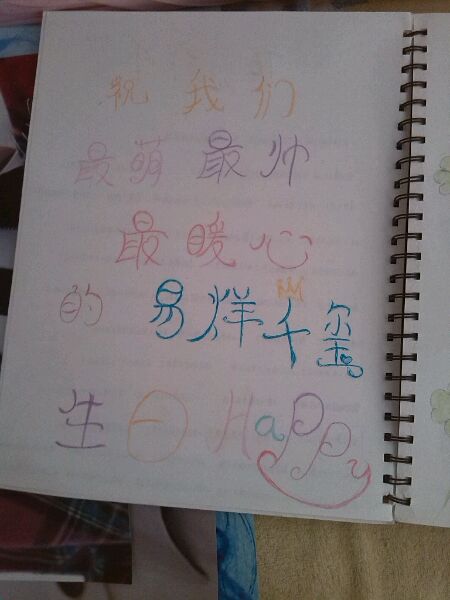 祝我们
最萌最帅
最暖心
的易烊千玺
生日Happy